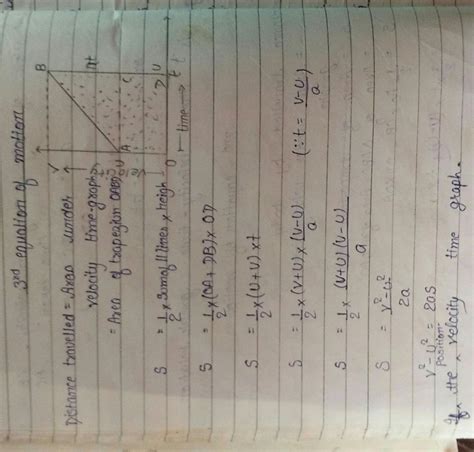 3rd equation of motion
Distance travelled = Area under
velocity time-graph
= Area of trapezion OABD
S = 1/2 × Sum of 11 lines × heigh
S = 1/2 × (OA + DB) × OD
S = 1/2 × (U + V) × t
S = 1/2 × (V+U) × (V-U)/a (∵ t = V-U/a)
S = 1/2 × (V+U)(V-U)/a
S = V²-U²/2a
V²-U² = 2aS
position
If ^ the velocity time graph.
B
C
A
U
V
O
D
t
time →